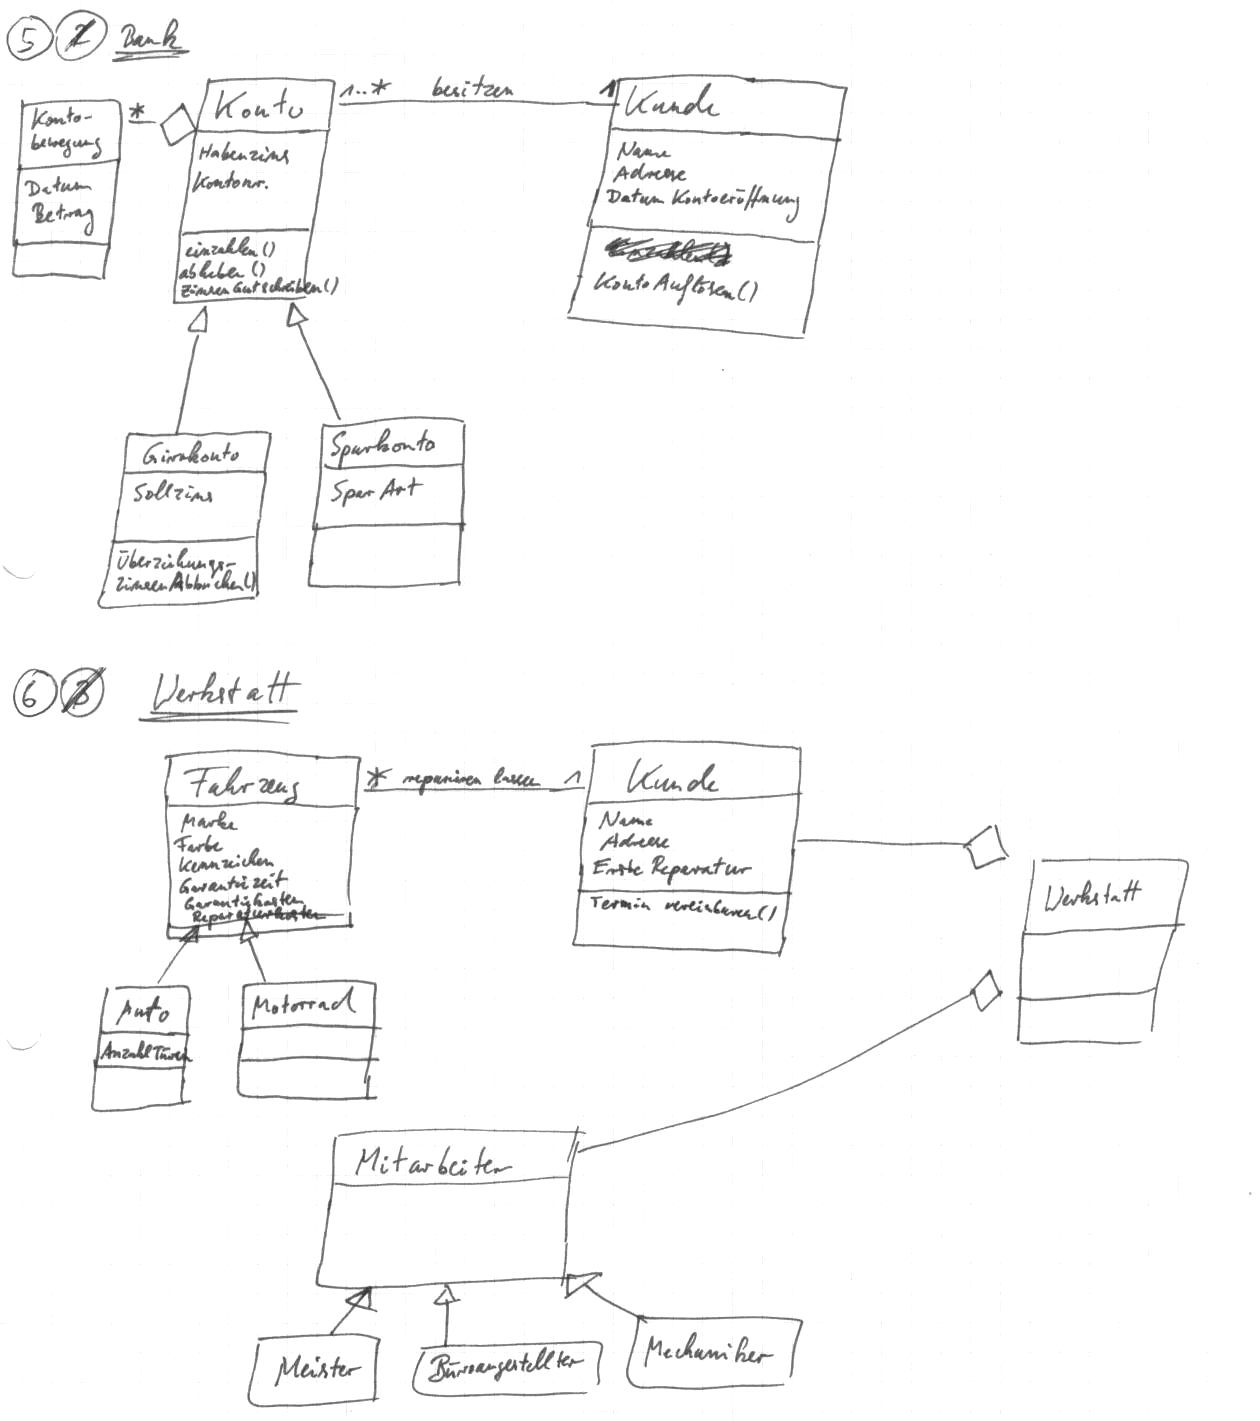 5 Bank
Konto-
bewegung
Datum
Betrag
*
Konto
Habenzins
Kontonr.
einzahlen()
abheben()
ZinsenGutschreiben()
1..* besitzen 1
Kunde
Name
Adresse
Datum Kontoeröffnung
KontoAuflösen()
Girokonto
Sollzins
Überziehungs-
zinsenAbbuchen()
Sparkonto
SparArt
6 Werkstatt
Fahrzeug
Marke
Farbe
Kennzeichen
Garantizeit
Garantiekosten
Reparaturkosten
* reparieren lassen 1
Kunde
Name
Adresse
Erste Reparatur
Termin vereinbaren()
Werkstatt
Auto
AnzahlTüren
Motorrad
Mitarbeiter
Meister
Büroangestellter
Mechaniker